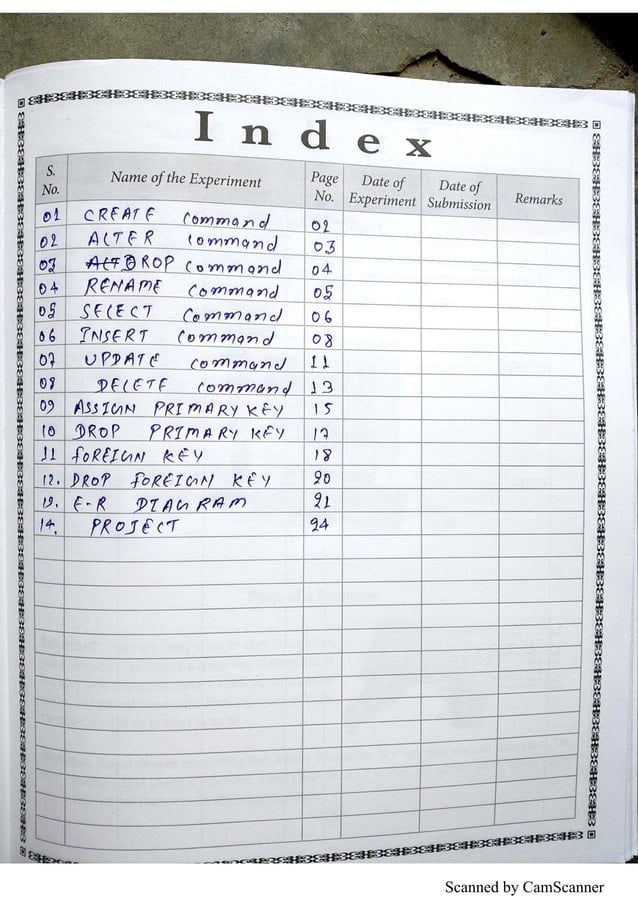 Index
S. No. Name of the Experiment Page No. Date of Experiment Date of Submission Remarks
01 CREATE command 02
02 ALTER command 03
03 DROP command 04
04 RENAME command 05
05 SELECT command 06
06 INSERT command 08
07 UPDATE command 11
08 DELETE command 13
09 ASSIGN PRIMARY KEY 15
10 DROP PRIMARY KEY 17
11 FOREIGN KEY 18
12. DROP FOREIGN KEY 20
13. E-R DIAGRAM 21
14. PROJECT 24
Scanned by CamScanner